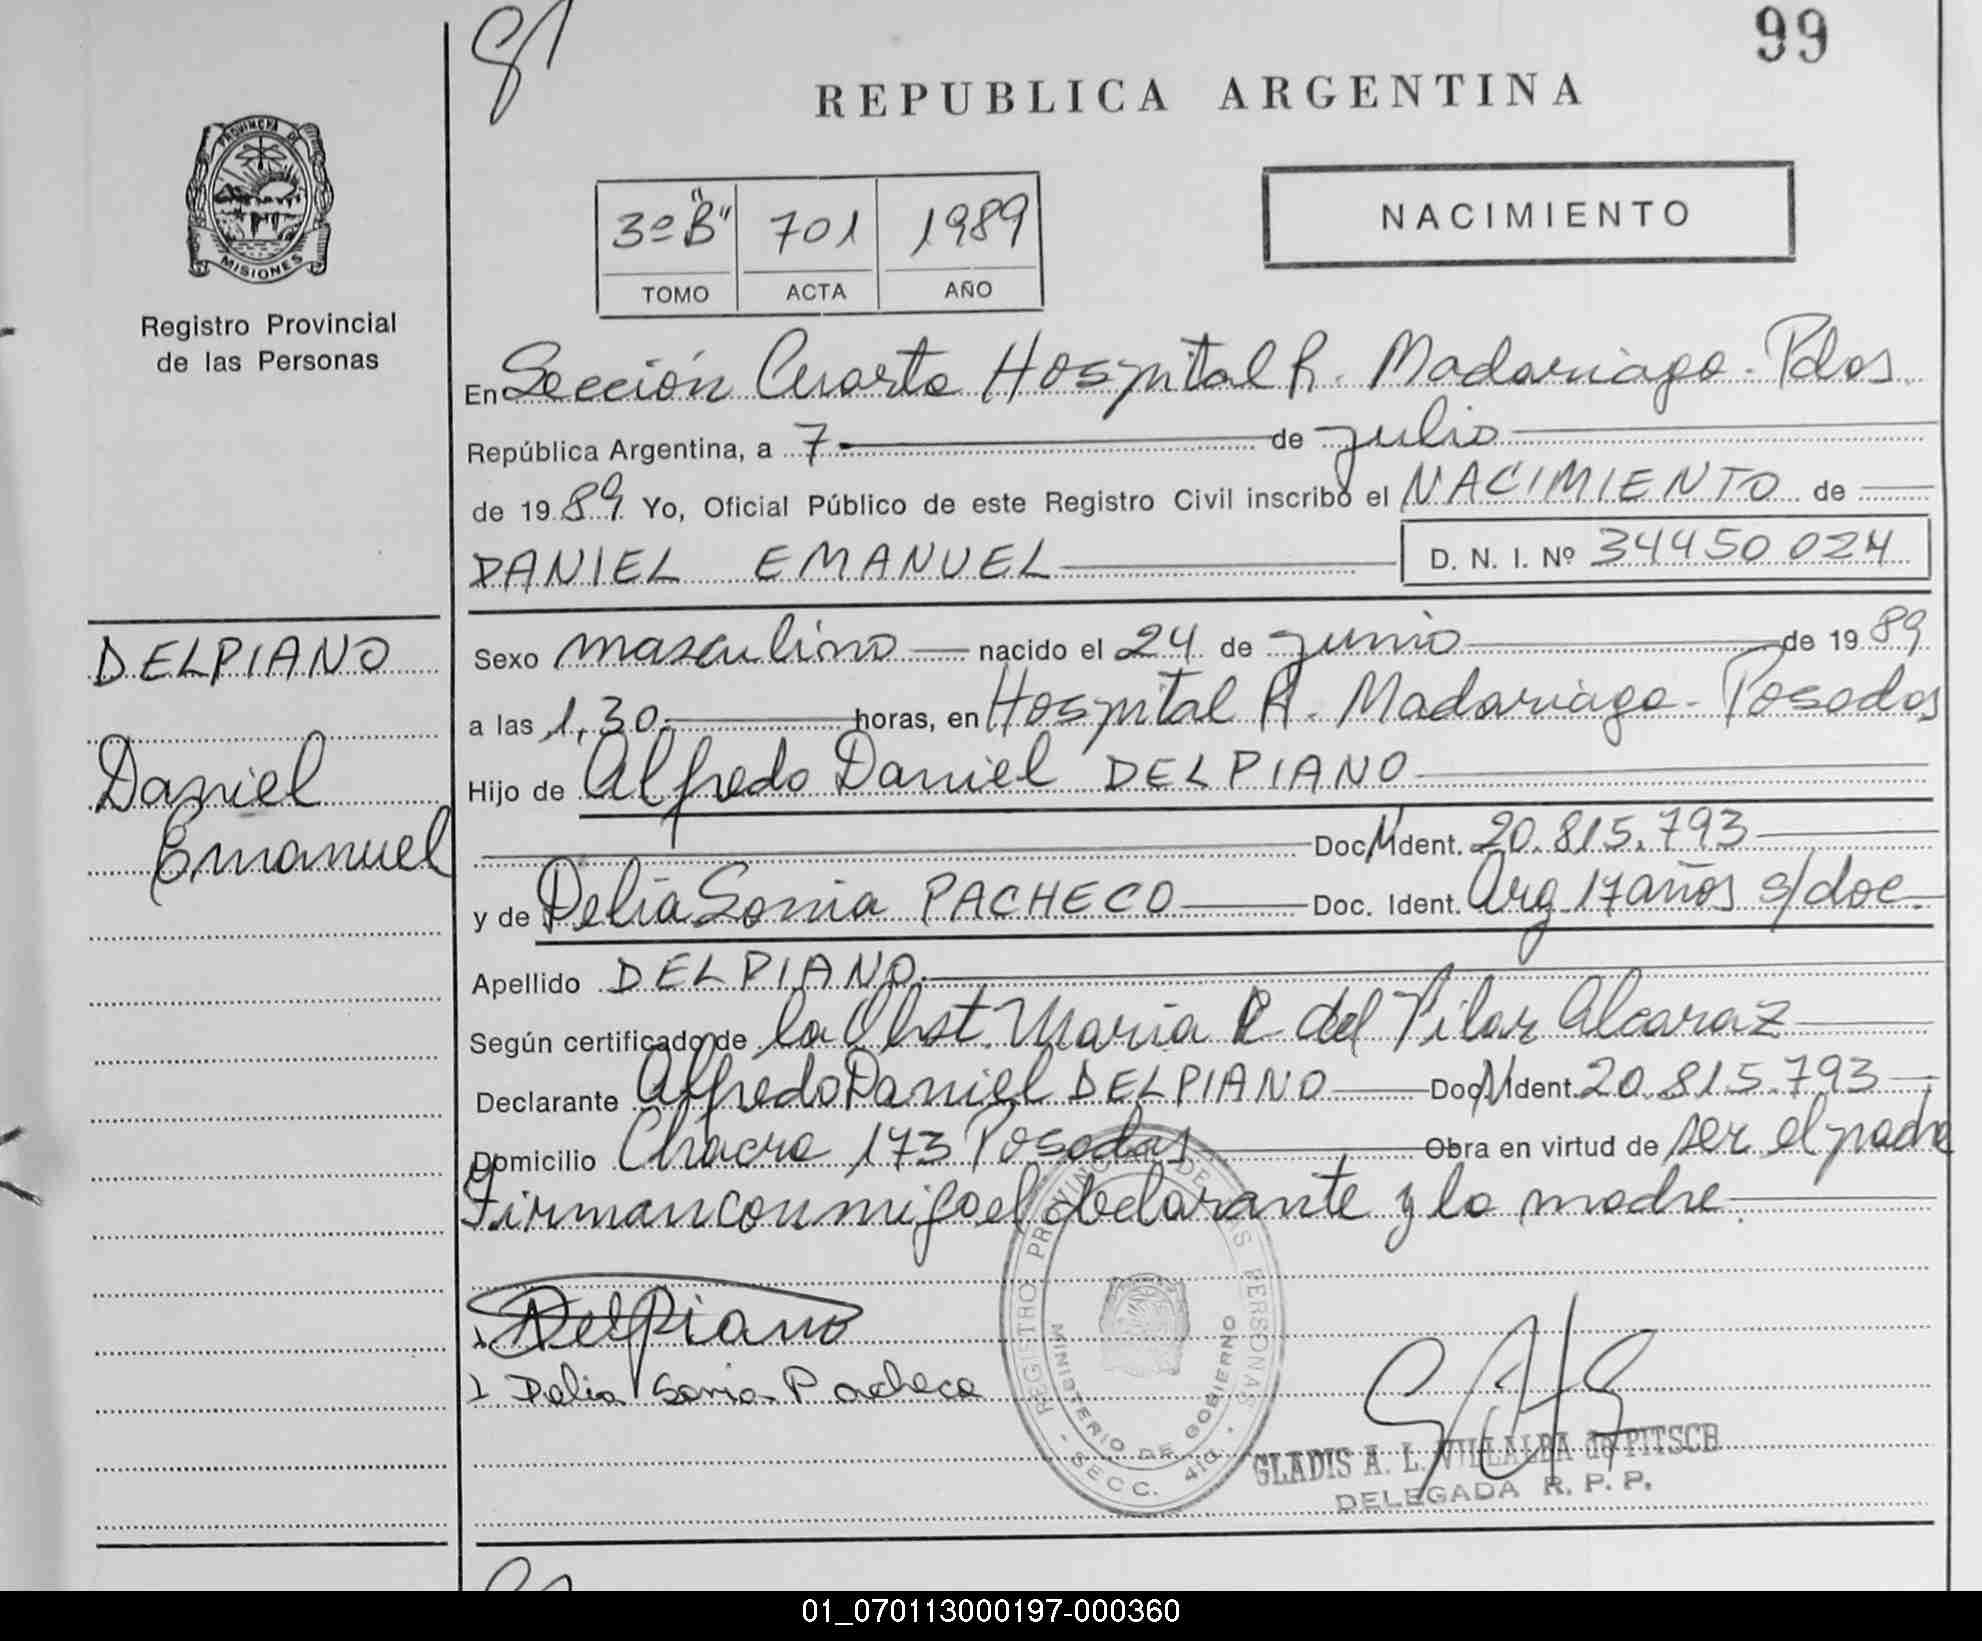 99
REPUBLICA ARGENTINA
PROVINCIA DE
MISIONES
Registro Provincial
de las Personas
3º "B" 701 1989
TOMO ACTA AÑO
NACIMIENTO
En Sección Cuarta Hospital R. Madariaga - Pdas.
República Argentina, a 7 de julio
de 1989 Yo, Oficial Público de este Registro Civil inscribo el NACIMIENTO de
DANIEL EMANUEL D. N. I. Nº 34450024
DELPIANO
Daniel
Emanuel
Sexo masculino nacido el 24 de junio de 1989
a las 1,30 horas, en Hospital R. Madariaga - Posadas
Hijo de Alfredo Daniel DELPIANO
Doc. Ident. 20.815.793
y de Delia Sonia PACHECO Doc. Ident. Arg 17 años s/doc.
Apellido DELPIANO.
Según certificado de la Obst. Maria del Pilar Alcaraz
Declarante Alfredo Daniel DELPIANO Doc. Ident. 20.815.793
Domicilio Chacra 173 Posadas Obra en virtud de ser el padre
Firman conmigo el declarante y la madre.
DelPiano
Delia Sonia Pacheco
REGISTRO PROVINCIAL DE LAS PERSONAS
MINISTERIO DE GOBIERNO
- SECC. 4ta. -
GLADIS A. L. VILLALBA de PITSCH
DELEGADA R. P. P.
01_070113000197-000360